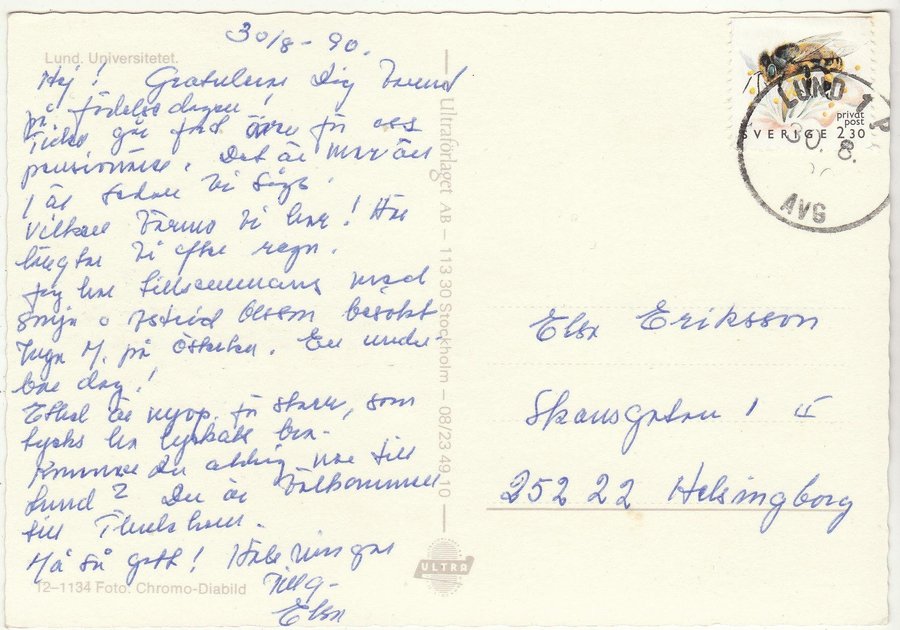 30/8-90.
Lund. Universitetet.
Hej! Gratulerar Dig Svend
på födelsedagen!
Tiden går fort även för oss
pensionärer. Det är mer än
1 år sedan vi sågs.
Vilken värme vi har! Här
längtar vi efter regn.
Jag har tillsammans med
Sonja o Astrid Olsson besökt
Inga M. på Österlen. En under-
bar dag!
Ethel är nyop. för starr, som
tycks ha lyckats bra.
Kommer Du aldrig mer till
Lund? Du är välkommen
till
Må så gott! Hälsningar
Tillg-
Elsa
12–1134 Foto: Chromo-Diabild
Ultraförlaget AB – 113 30 Stockholm – 08/23 49 10
ULTRA
privat
post
SVERIGE 2.30
LUND 1
30. 8.
AVG
Elsa Eriksson
Skansgatan 1
252 22 Helsingborg